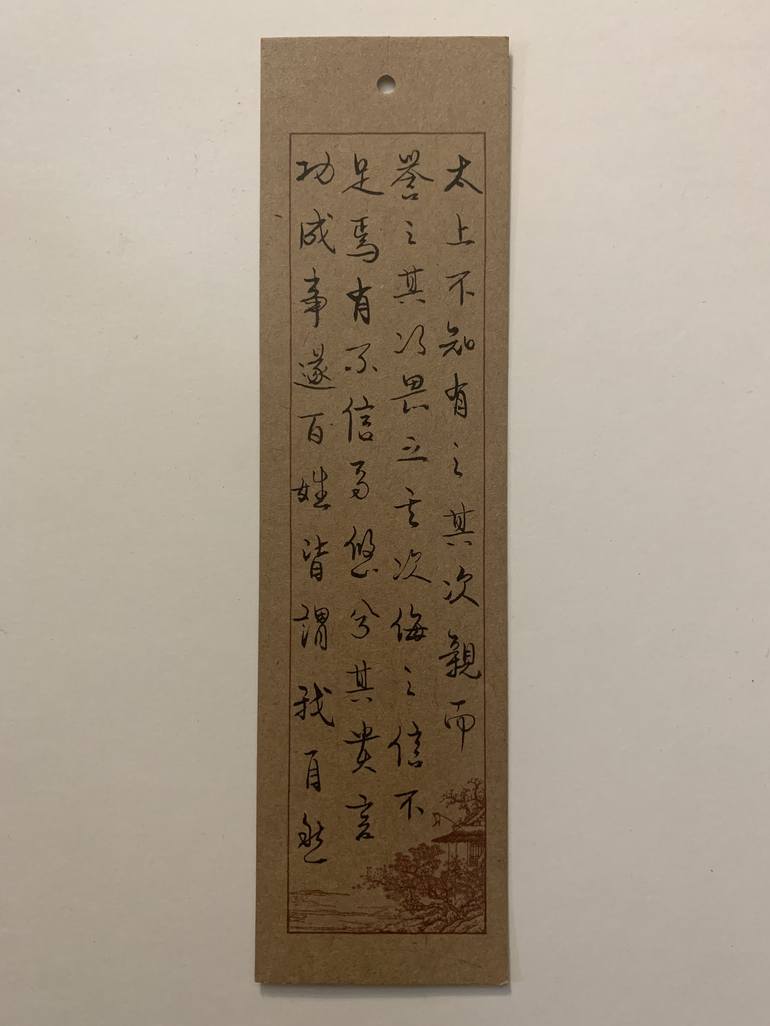 太上不知有之其次親而
譽之其次畏之其次侮之信不
足焉有不信焉悠兮其貴言
功成事遂百姓皆謂我自然